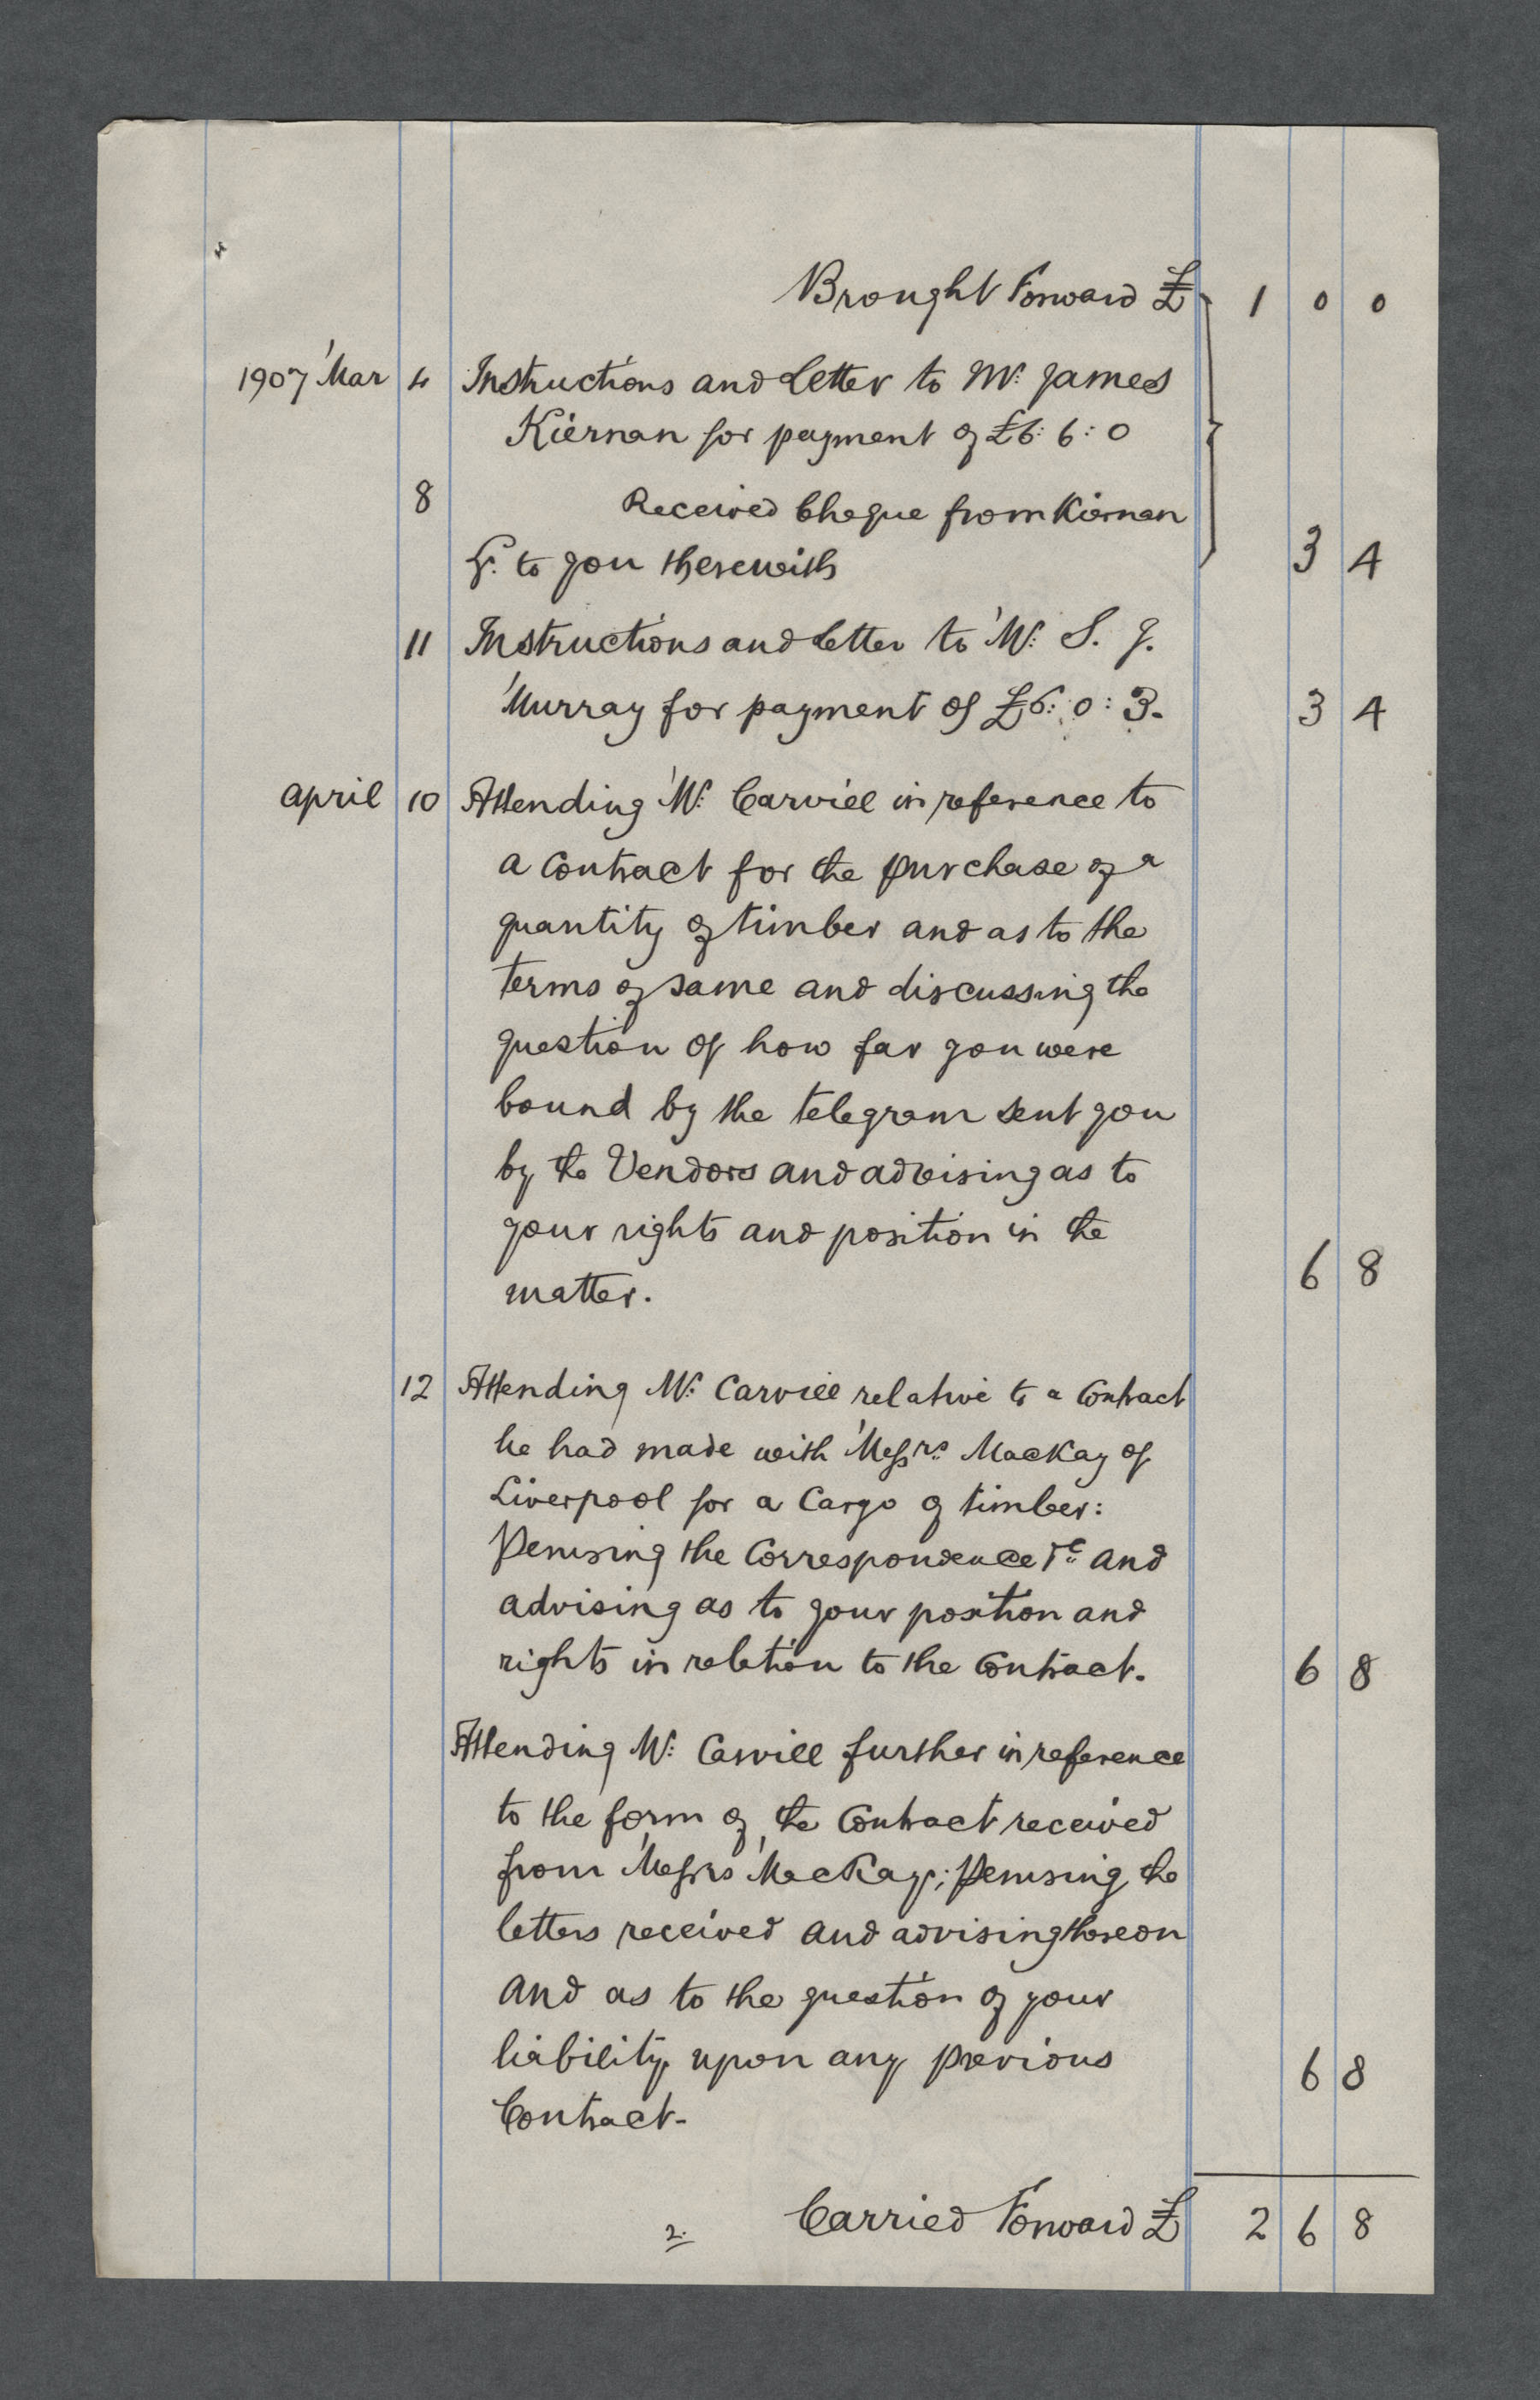 Brought Forward £ 1 0 0
1907 Mar 4 Instructions and Letter to Mr. James
Kiernan for payment of £6: 6: 0
8 Received Cheque from Kiernan
Lr. to you therewith 3 4
11 Instructions and Letter to Mr. S. J.
Murray for payment of £6: 0: 3. 3 4
April 10 Attending Mr. Carvill in reference to
a Contract for the purchase of a
quantity of timber and as to the
terms of same and discussing the
question of how far you were
bound by the telegram sent you
by the Vendors and advising as to
your rights and position in the
matter. 6 8
12 Attending Mr. Carvill relative to a Contract
he had made with Messrs. MacKay of
Liverpool for a Cargo of timber:
Perusing the Correspondence &c and
advising as to your position and
rights in relation to the Contract. 6 8
Attending Mr. Carvill further in reference
to the form of the Contract received
from Messrs MacKay; Perusing the
letters received and advising thereon
and as to the question of your
liability upon any previous
Contract- 6 8
2. Carried Forward £ 2 6 8